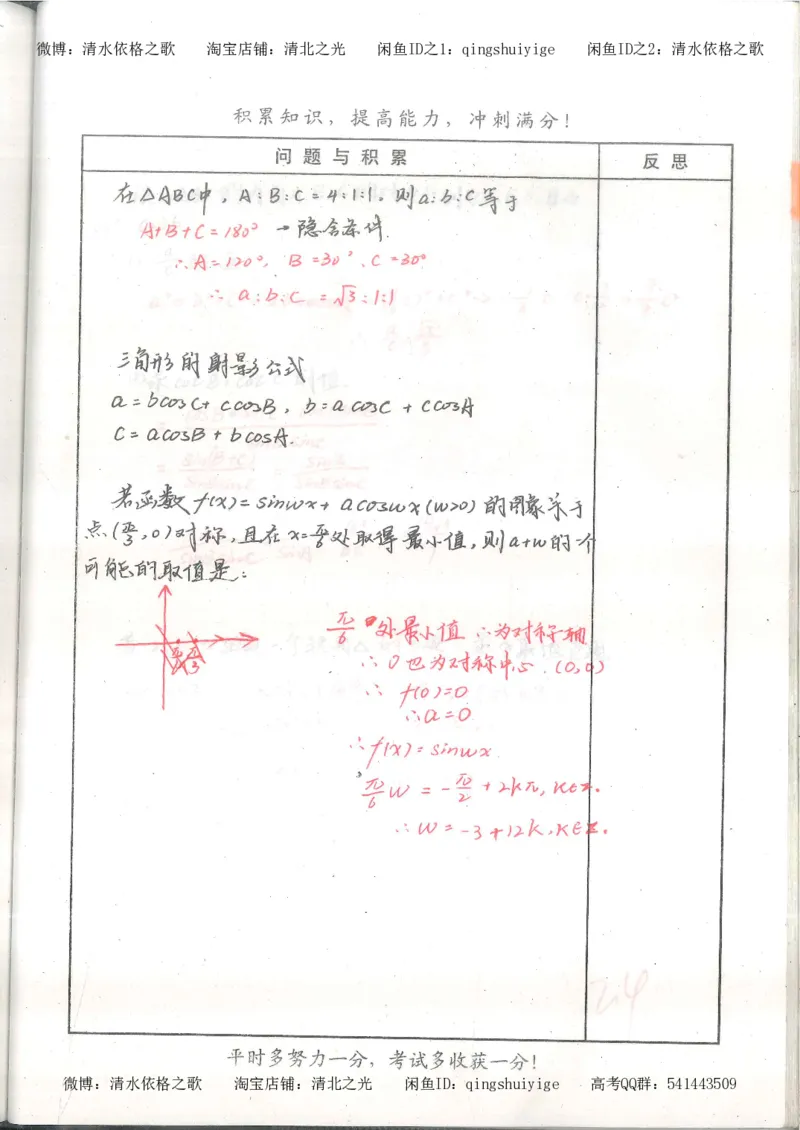 微博：清水依格之歌 淘宝店铺：清北之光 闲鱼ID之1：qingshuiyige 闲鱼ID之2：清水依格之歌
积累知识，提高能力，冲刺满分！
问题与积累 反思
在△ABC中，A:B:C=4:1:1。则a:b:c等于
A+B+C=180° → 隐含条件.
∴A=120°, B=30°、C=30°
∴ a:b:c = √3:1:1
三角形的射影公式
a=bcosC+ccosB, b=acosC+ccosA
C=acosB+bcosA.
若函数f(x)=sinwx+acoswx(w>0)的图象关于
点(π/3,0)对称,且在x=π/6处取得最小值,则a+w的一个
可能的取值是:
π/6处最小值 ∴为对称轴
∴0也为对称中心.(0,0)
∴ f(0)=0
∴a=0
∴f(x)=sinwx
π/6 w = -π/2 + 2kπ, k∈z.
∴w=-3+12k,k∈z.
24
平时多努力一分，考试多收获一分！
微博：清水依格之歌 淘宝店铺：清北之光 闲鱼ID：qingshuiyige 高考QQ群：541443509